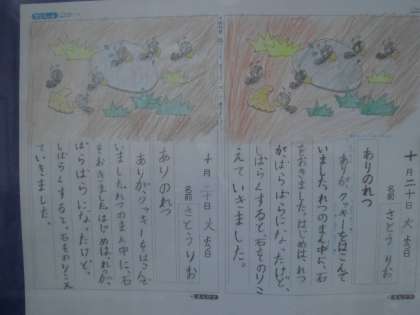 十月二十日 火よう日
名前 さとう りお
ありのれつ
ありが、クッキーをはこんで
いました。れつのまん中に、石
をおきました。はじめは、れつ
がばらばらになったけど、
しばらくすると、石をのりこ
えていきました。
十月二十日 火よう日
名前 さとう りお
ありのれつ
ありが、クッキーをはこんで
いました。れつのまん中に、石
をおきました。はじめは、れつが、
ばらばらになったけど、
しばらくすると、石をのりこえ
ていきました。